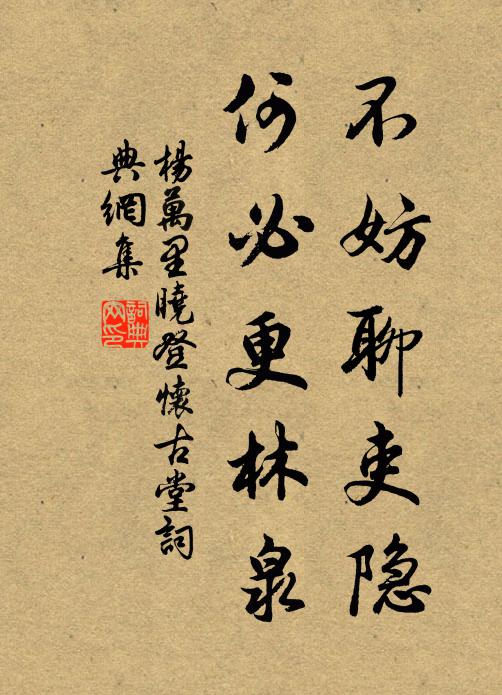 不妨聊吏隐
何必更林泉
楊萬里曉登懷古堂詞
典網集
詞典
网印